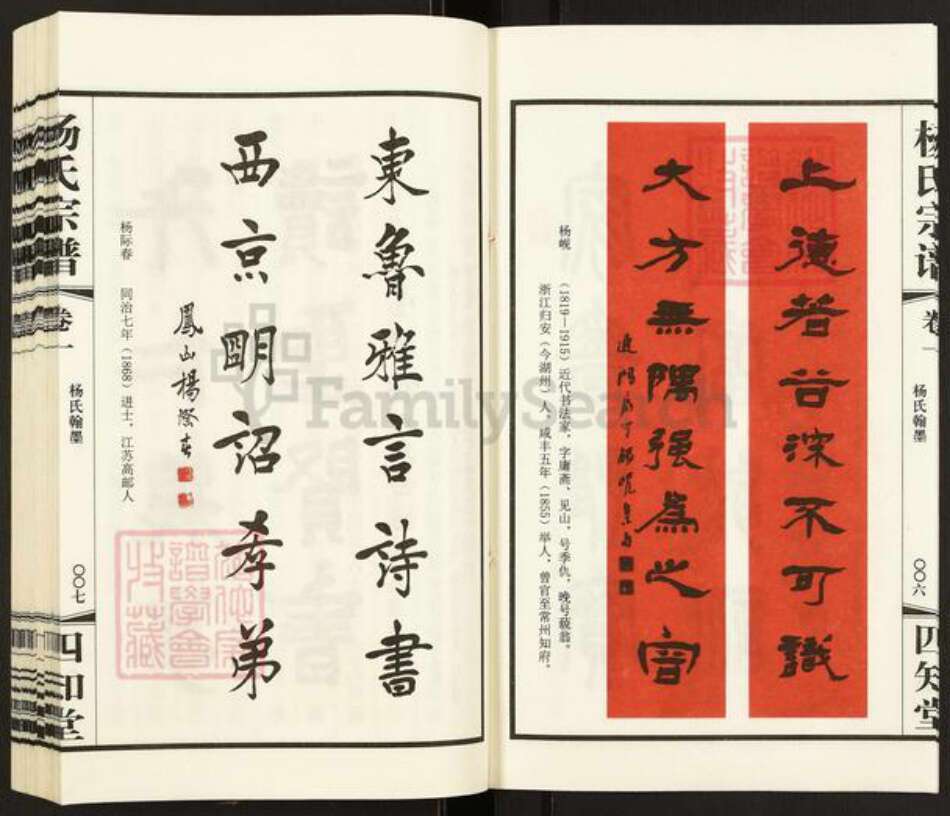 杨氏宗谱
卷一
杨氏翰墨
〇〇六
四知堂
上德若谷深不可識
大方無隅强為之容
杨岘
(1819—1915)近代书法家,字庸斋、见山,号季仇,晚号藐翁。
浙江归安(今湖州)人,咸丰五年(1855)举人,曾官至常州知府。
東魯雅言詩書
西京明詔孝弟
鳳山楊際春
杨际春 同治七年(1868)进士,江苏高邮人
杨氏宗谱
卷一
杨氏翰墨
〇〇七
四知堂
FamilySearch